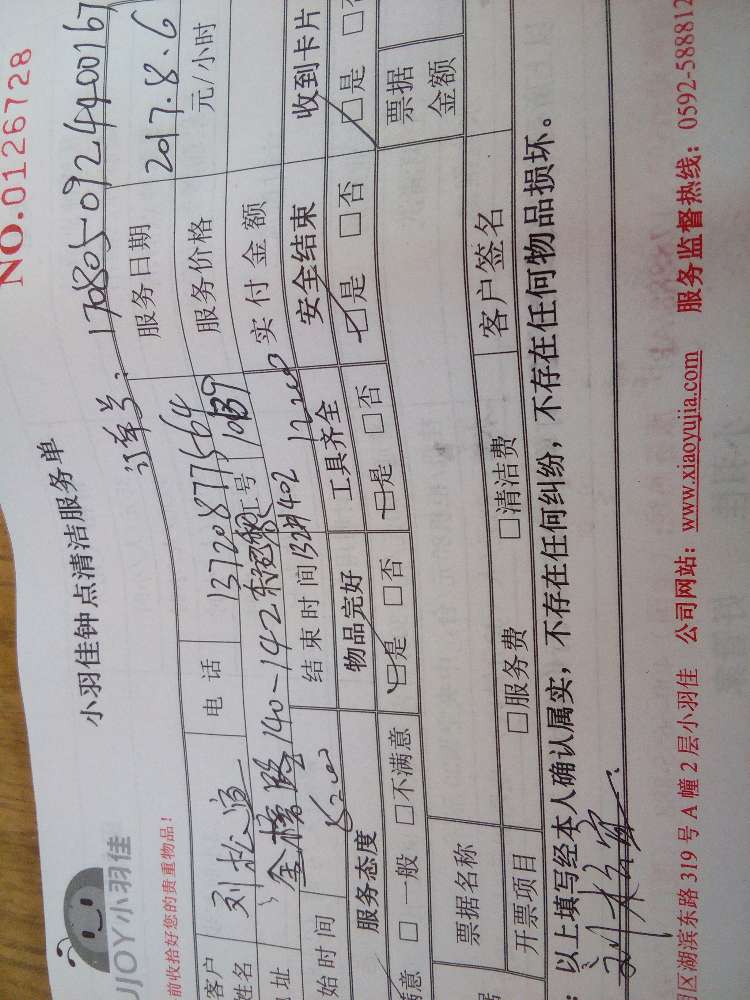 NO.0126728
JJOY小羽佳
小羽佳钟点清洁服务单
前收拾好您的贵重物品！
订单号：170805092440016
客户姓名 刘松 电话 13720877564 服务日期 2017.8.6
地址 金榜路140-142 工号 服务价格 元/小时
始时间 结束时间 12:00 实付金额
服务态度 物品完好 工具齐全 安全结束 收到卡片
满意 □一般 □不满意 □是 □否 □是 □否 □是 □否 □是
票据名称 票据金额
开票项目 □服务费 □清洁费 客户签名
：以上填写经本人确认属实，不存在任何纠纷，不存在任何物品损坏。
区湖滨东路 319 号 A 幢 2 层小羽佳 公司网站：www.xiaoyujia.com 服务监督热线：0592-588812